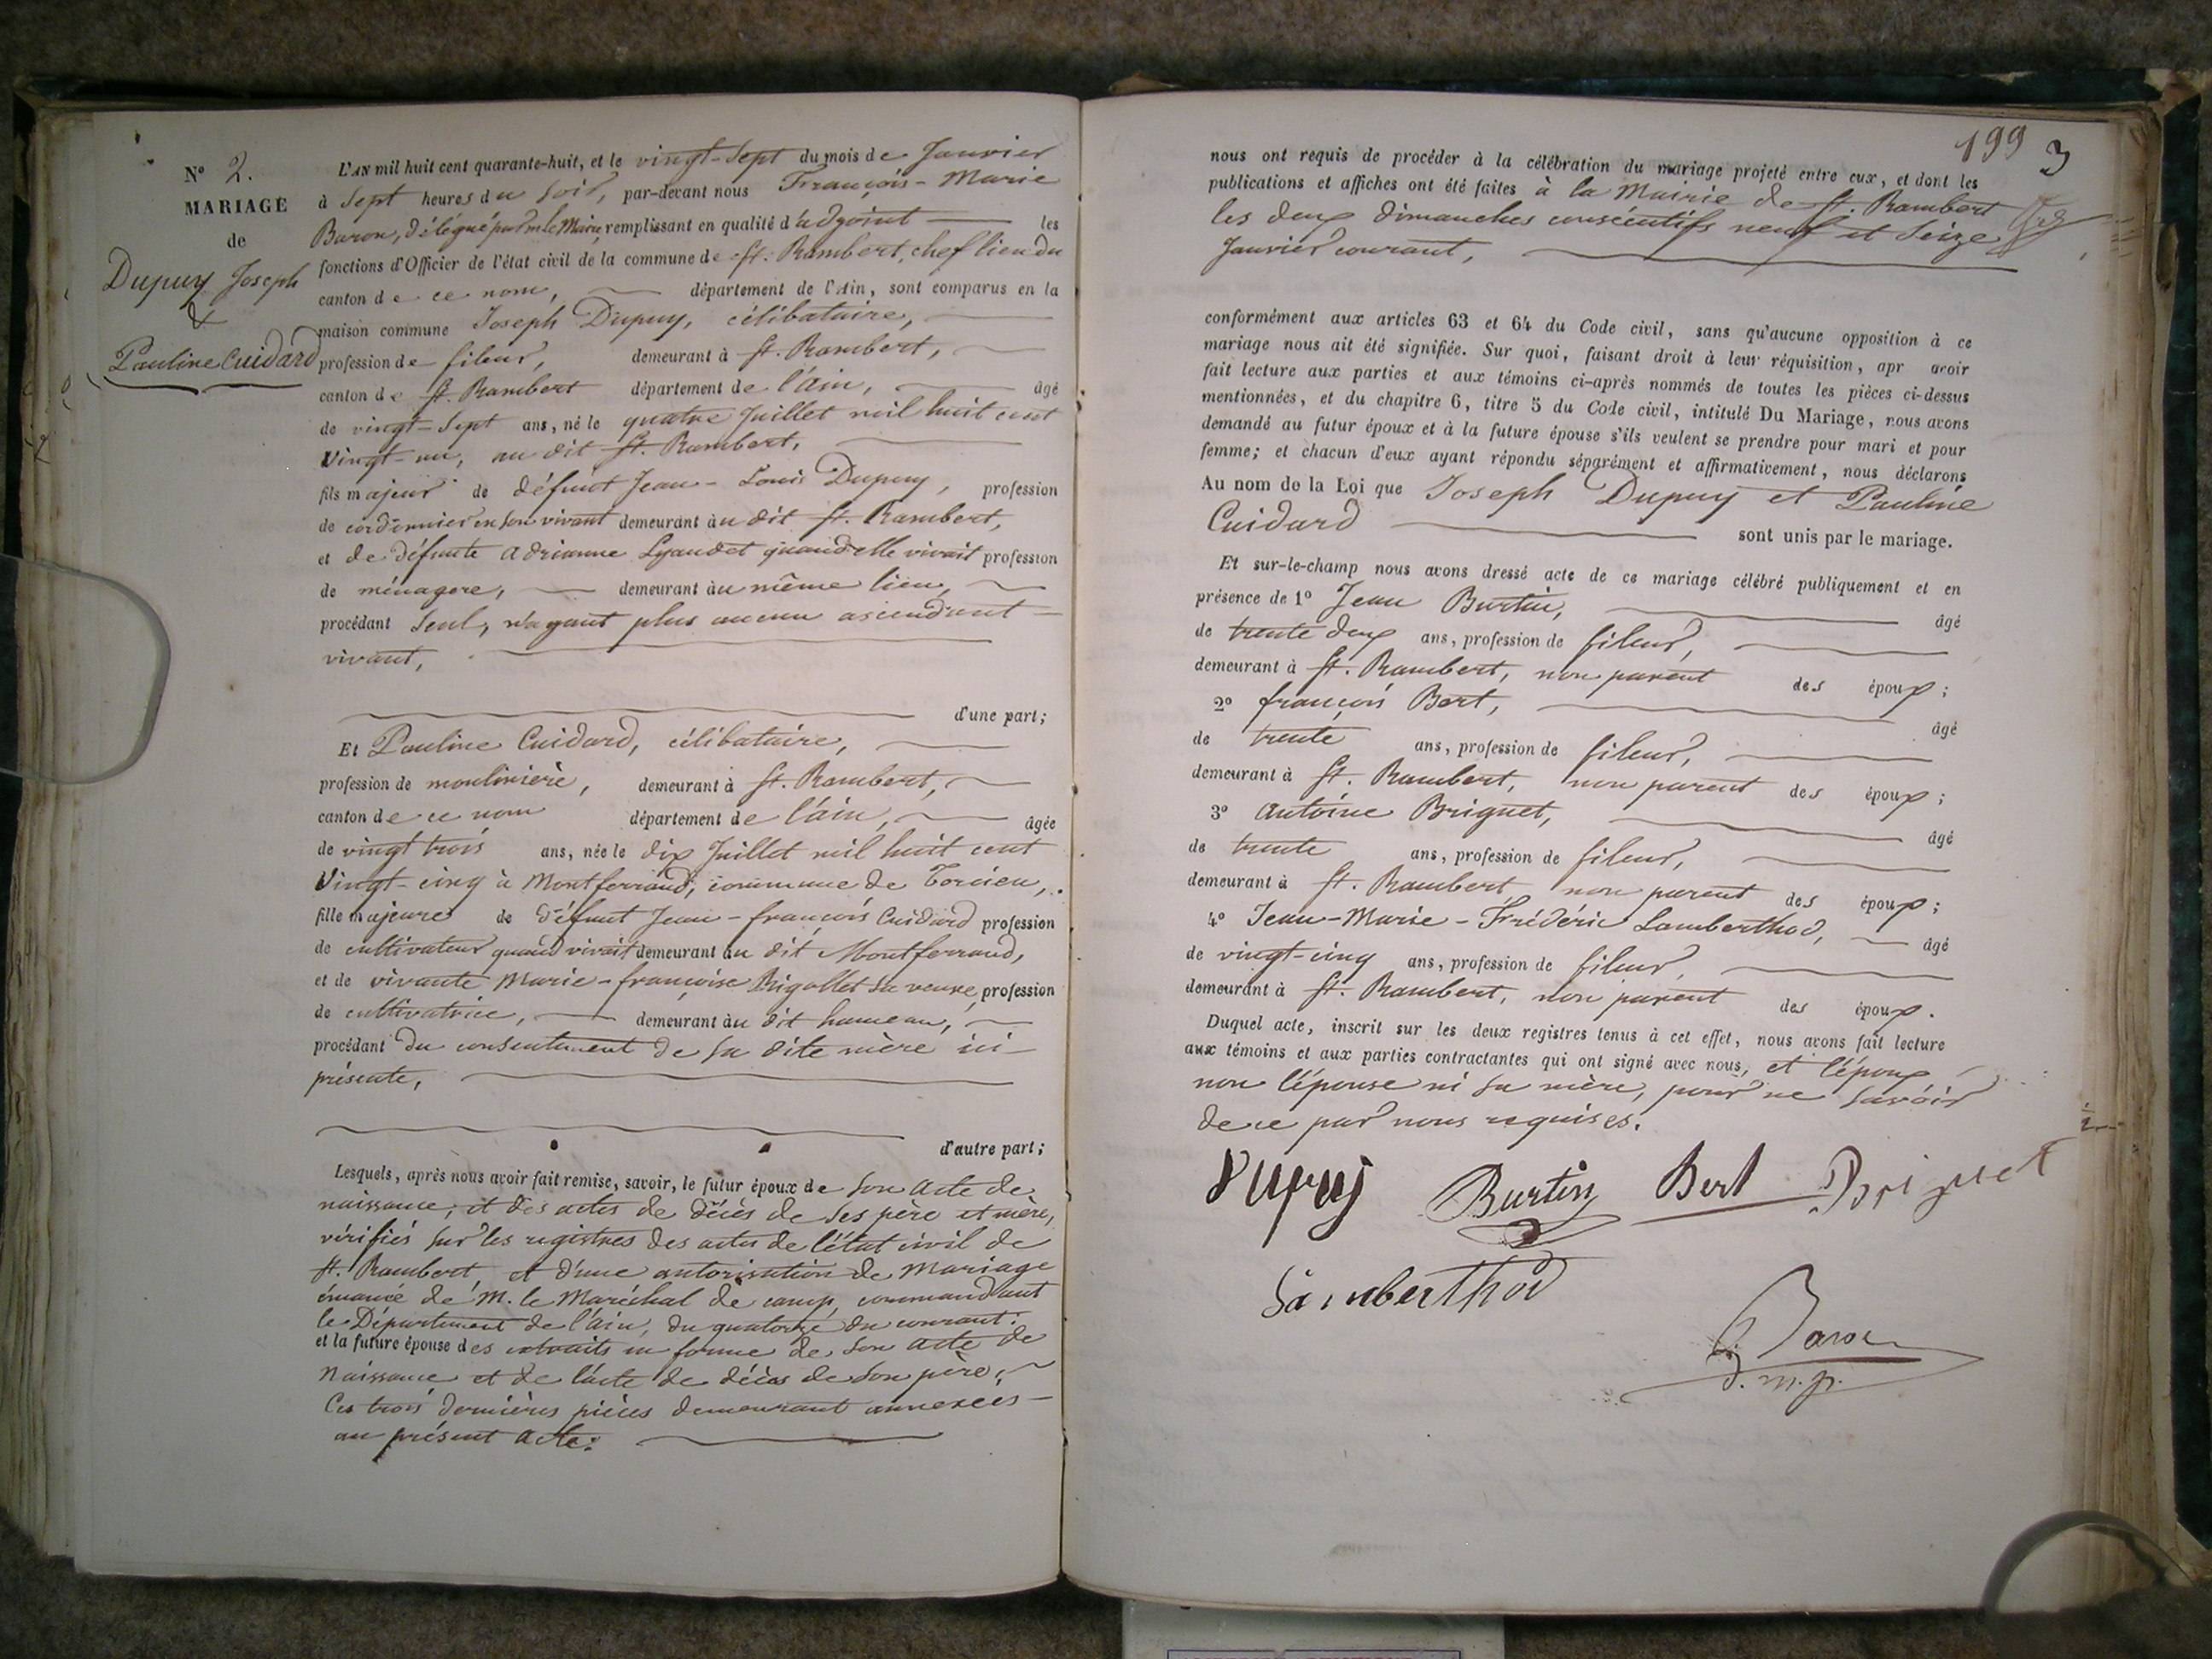 N° 2.
MARIAGE
de
Dupuy Joseph
&
Pauline Cuidard
L'AN mil huit cent quarante-huit, et le vingt-sept du mois de Janvier
à sept heures du soir, par-devant nous François-Marie
Baron, délégué par m. le Maire, remplissant en qualité d'adjoint les
fonctions d'Officier de l'état civil de la commune de St. Rambert, chef lieu du
canton de ce nom, département de l'Ain, sont comparus en la
maison commune Joseph Dupuy, célibataire,
profession de fileur, demeurant à St. Rambert,
canton de St. Rambert département de l'ain, âgé
de vingt-sept ans, né le quatre Juillet mil huit cent
vingt-un, au dit St. Rambert,
fils majeur de défunt Jean-Louis Dupuy, profession
de cordonnier en son vivant demeurant au dit St. Rambert,
et de défunte adrianne Lyaudet quand elle vivait profession
de ménagere, demeurant au même lieu,
procédant seul, n'ayant plus aucun ascendant
vivant,
d'une part;
Et Pauline Cuidard, célibataire,
profession de moulinière, demeurant à St. Rambert,
canton de ce nom département de l'ain, âgée
de vingt trois ans, née le dix Juillet mil huit cent
vingt-cinq à Montferrand, commune de Torcieu,
fille majeure de défunt Jean-françois Cuidard profession
de cultivateur quand vivait demeurant au dit Montferrand,
et de vivante Marie-françoise Rigollet sa veuve, profession
de cultivatrice, demeurant au dit hameau,
procédant du consentement de sa dite mère ici
présente,
d'autre part;
Lesquels, après nous avoir fait remise, savoir, le futur époux de son acte de
naissance, et des actes de décès de ses père et mère,
vérifiés sur les registres des actes de l'état civil de
St. Rambert, et d'une autorisation de Mariage
émanée de M. le Maréchal de camp, commandant
le Département de l'ain, du quatorze du courant:
et la future épouse des extraits en forme de son acte de
Naissance et de l'acte de décès de son père,
Ces trois dernières pièces demeurant annexées
au présent acte:
199 3
nous ont requis de procéder à la célébration du mariage projeté entre eux, et dont les
publications et affiches ont été faites à la Mairie de St. Rambert
les deux dimanches consécutifs neuf et seize
Janvier courant,
conformément aux articles 63 et 64 du Code civil, sans qu'aucune opposition à ce
mariage nous ait été signifiée. Sur quoi, faisant droit à leur réquisition, apr avoir
fait lecture aux parties et aux témoins ci-après nommés de toutes les pièces ci-dessus
mentionnées, et du chapitre 6, titre 5 du Code civil, intitulé Du Mariage, nous avons
demandé au futur époux et à la future épouse s'ils veulent se prendre pour mari et pour
femme; et chacun d'eux ayant répondu séparément et affirmativement, nous déclarons
Au nom de la Loi que Joseph Dupuy et Pauline
Cuidard sont unis par le mariage.
Et sur-le-champ nous avons dressé acte de ce mariage célébré publiquement et en
présence de 1° Jean Burtin, âgé
de trente deux ans, profession de fileur,
demeurant à St. Rambert, non parent des époux;
2° françois Bert, âgé
de trente ans, profession de fileur,
demeurant à St. Rambert, non parent des époux;
3° Antoine Briguet, âgé
de trente ans, profession de fileur,
demeurant à St. Rambert non parent des époux;
4° Jean-Marie-Frédéric Lamberthod, âgé
de vingt-cinq ans, profession de fileur,
demeurant à St. Rambert, non parent des époux.
Duquel acte, inscrit sur les deux registres tenus à cet effet, nous avons fait lecture
aux témoins et aux parties contractantes qui ont signé avec nous, et l'époux
non l'épouse ni sa mère, pour ne savoir
de ce par nous requises.
Dupuy Burtin Bert Briguet
Lamberthod
Baron
d. m. p.